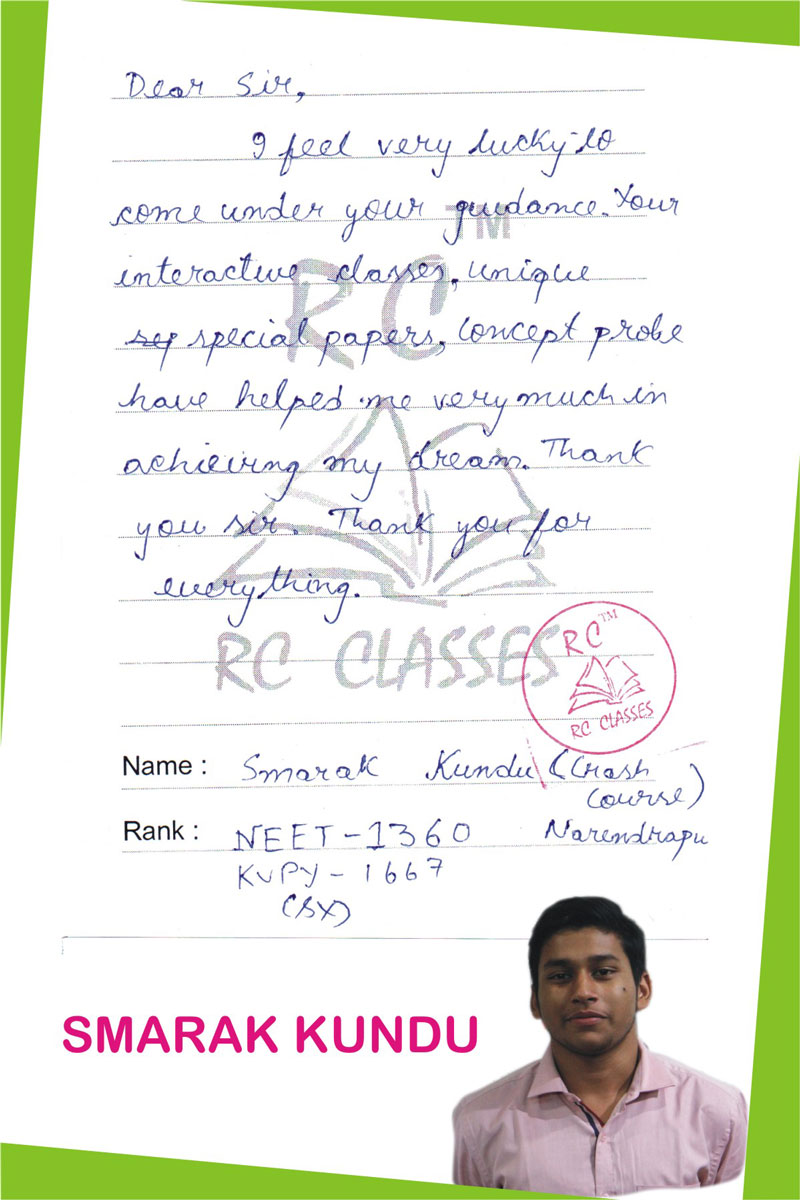 Dear Sir,
I feel very lucky to
come under your guidance. Your
interactive classes, unique
sep special papers, Concept probe
have helped me very much in
achieving my dream. Thank
you sir. Thank you for
everything.
TM
RC
RC CLASSES
RC TM
RC CLASSES
Name : Smarak Kundu (Crash
Course)
Rank : NEET - 1360 Narendrapu
KVPY - 1667
(SX)
SMARAK KUNDU